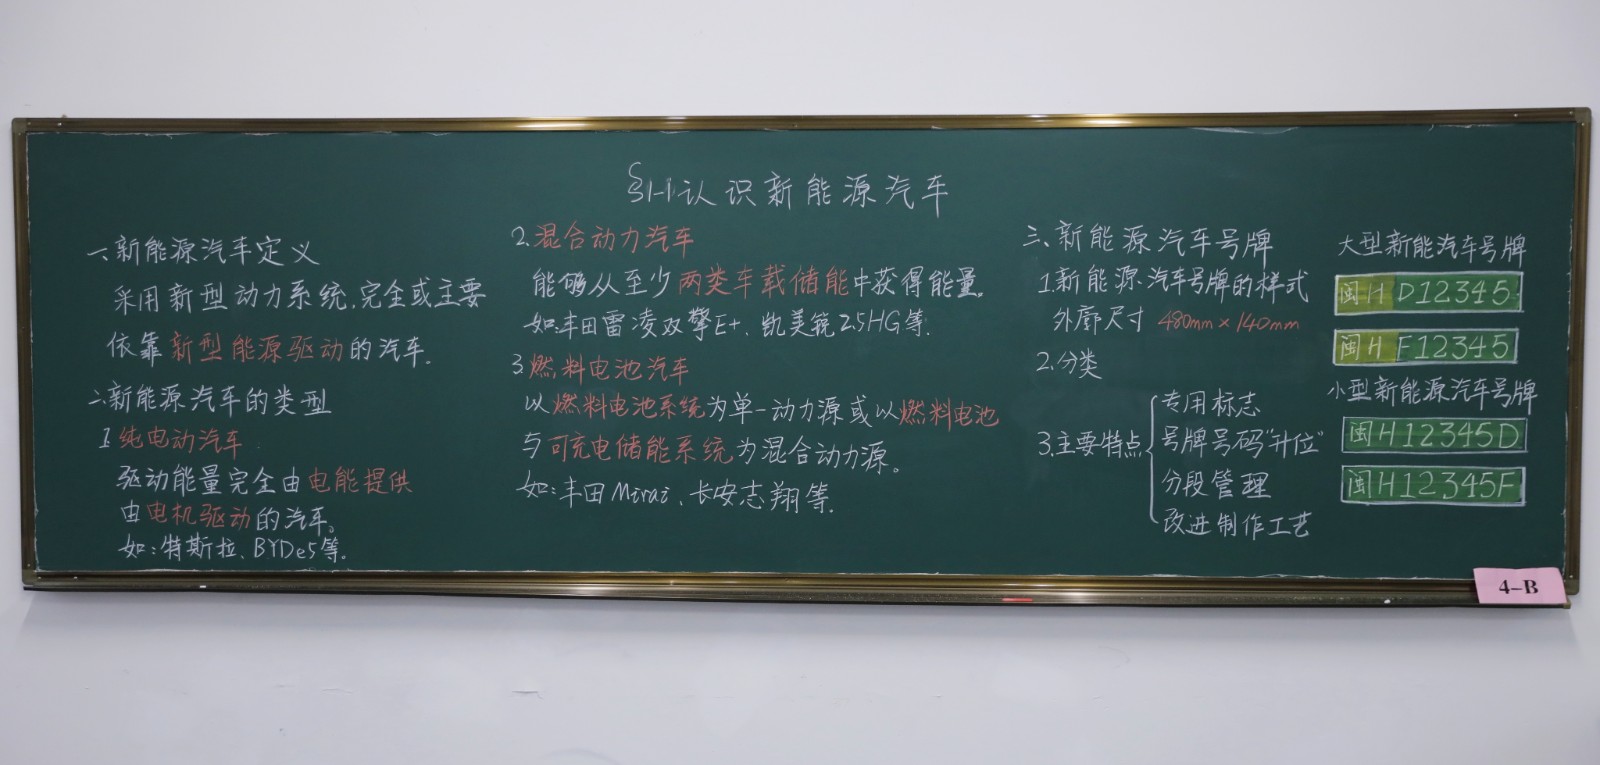 §1-1认识新能源汽车
一、新能源汽车定义
采用新型动力系统,完全或主要
依靠新型能源驱动的汽车.
二、新能源汽车的类型
1.纯电动汽车
驱动能量完全由电能提供
由电机驱动的汽车。
如:特斯拉、BYDe5等.
2.混合动力汽车
能够从至少两类车载储能中获得能量。
如:丰田雷凌双擎E+、凯美锐2.5HG等.
3.燃料电池汽车
以燃料电池系统为单一动力源或以燃料电池
与可充电储能系统为混合动力源。
如:丰田Mirai、长安志翔等.
三、新能源汽车号牌
1.新能源汽车号牌的样式
外廓尺寸 480mm×140mm
2.分类
3.主要特点
专用标志
号牌号码"升位"
分段管理
改进制作工艺
大型新能汽车号牌
闽H D12345
闽H F12345
小型新能源汽车号牌
闽H12345D
闽H12345F
4-B